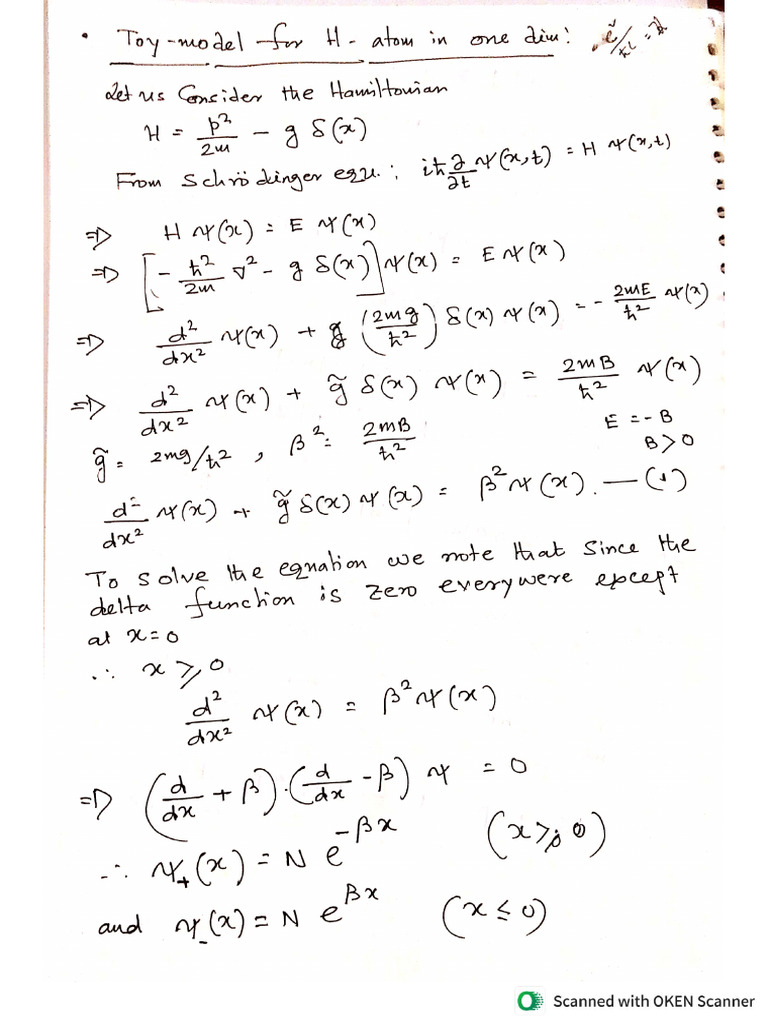 • Toy-model for H-atom in one dim:
Let us Consider the Hamiltonian
H = p²/2m - g δ(x)
From Schrödinger equ.: iħ ∂/∂t ψ(x,t) = H ψ(x,t)
⇒ H ψ(x) = E ψ(x)
⇒ [-ħ²/2m ∇² - g δ(x)] ψ(x) = E ψ(x)
⇒ d²/dx² ψ(x) + (2mg/ħ²) δ(x) ψ(x) = - 2mE/ħ² ψ(x)
⇒ d²/dx² ψ(x) + g̃ δ(x) ψ(x) = 2mB/ħ² ψ(x)
E = -B
g̃ = 2mg/ħ² , β² = 2mB/ħ²
B > 0
d²/dx² ψ(x) + g̃ δ(x) ψ(x) = β² ψ(x). — (1)
To solve the equation we note that since the
delta function is zero everywere except
at x=0
∴ x ≥ 0
d²/dx² ψ(x) = β² ψ(x)
⇒ (d/dx + β)·(d/dx - β) ψ = 0
∴ ψ₊(x) = N e^{-βx} (x ≥ 0)
and ψ₋(x) = N e^{βx} (x ≤ 0)
Scanned with OKEN Scanner